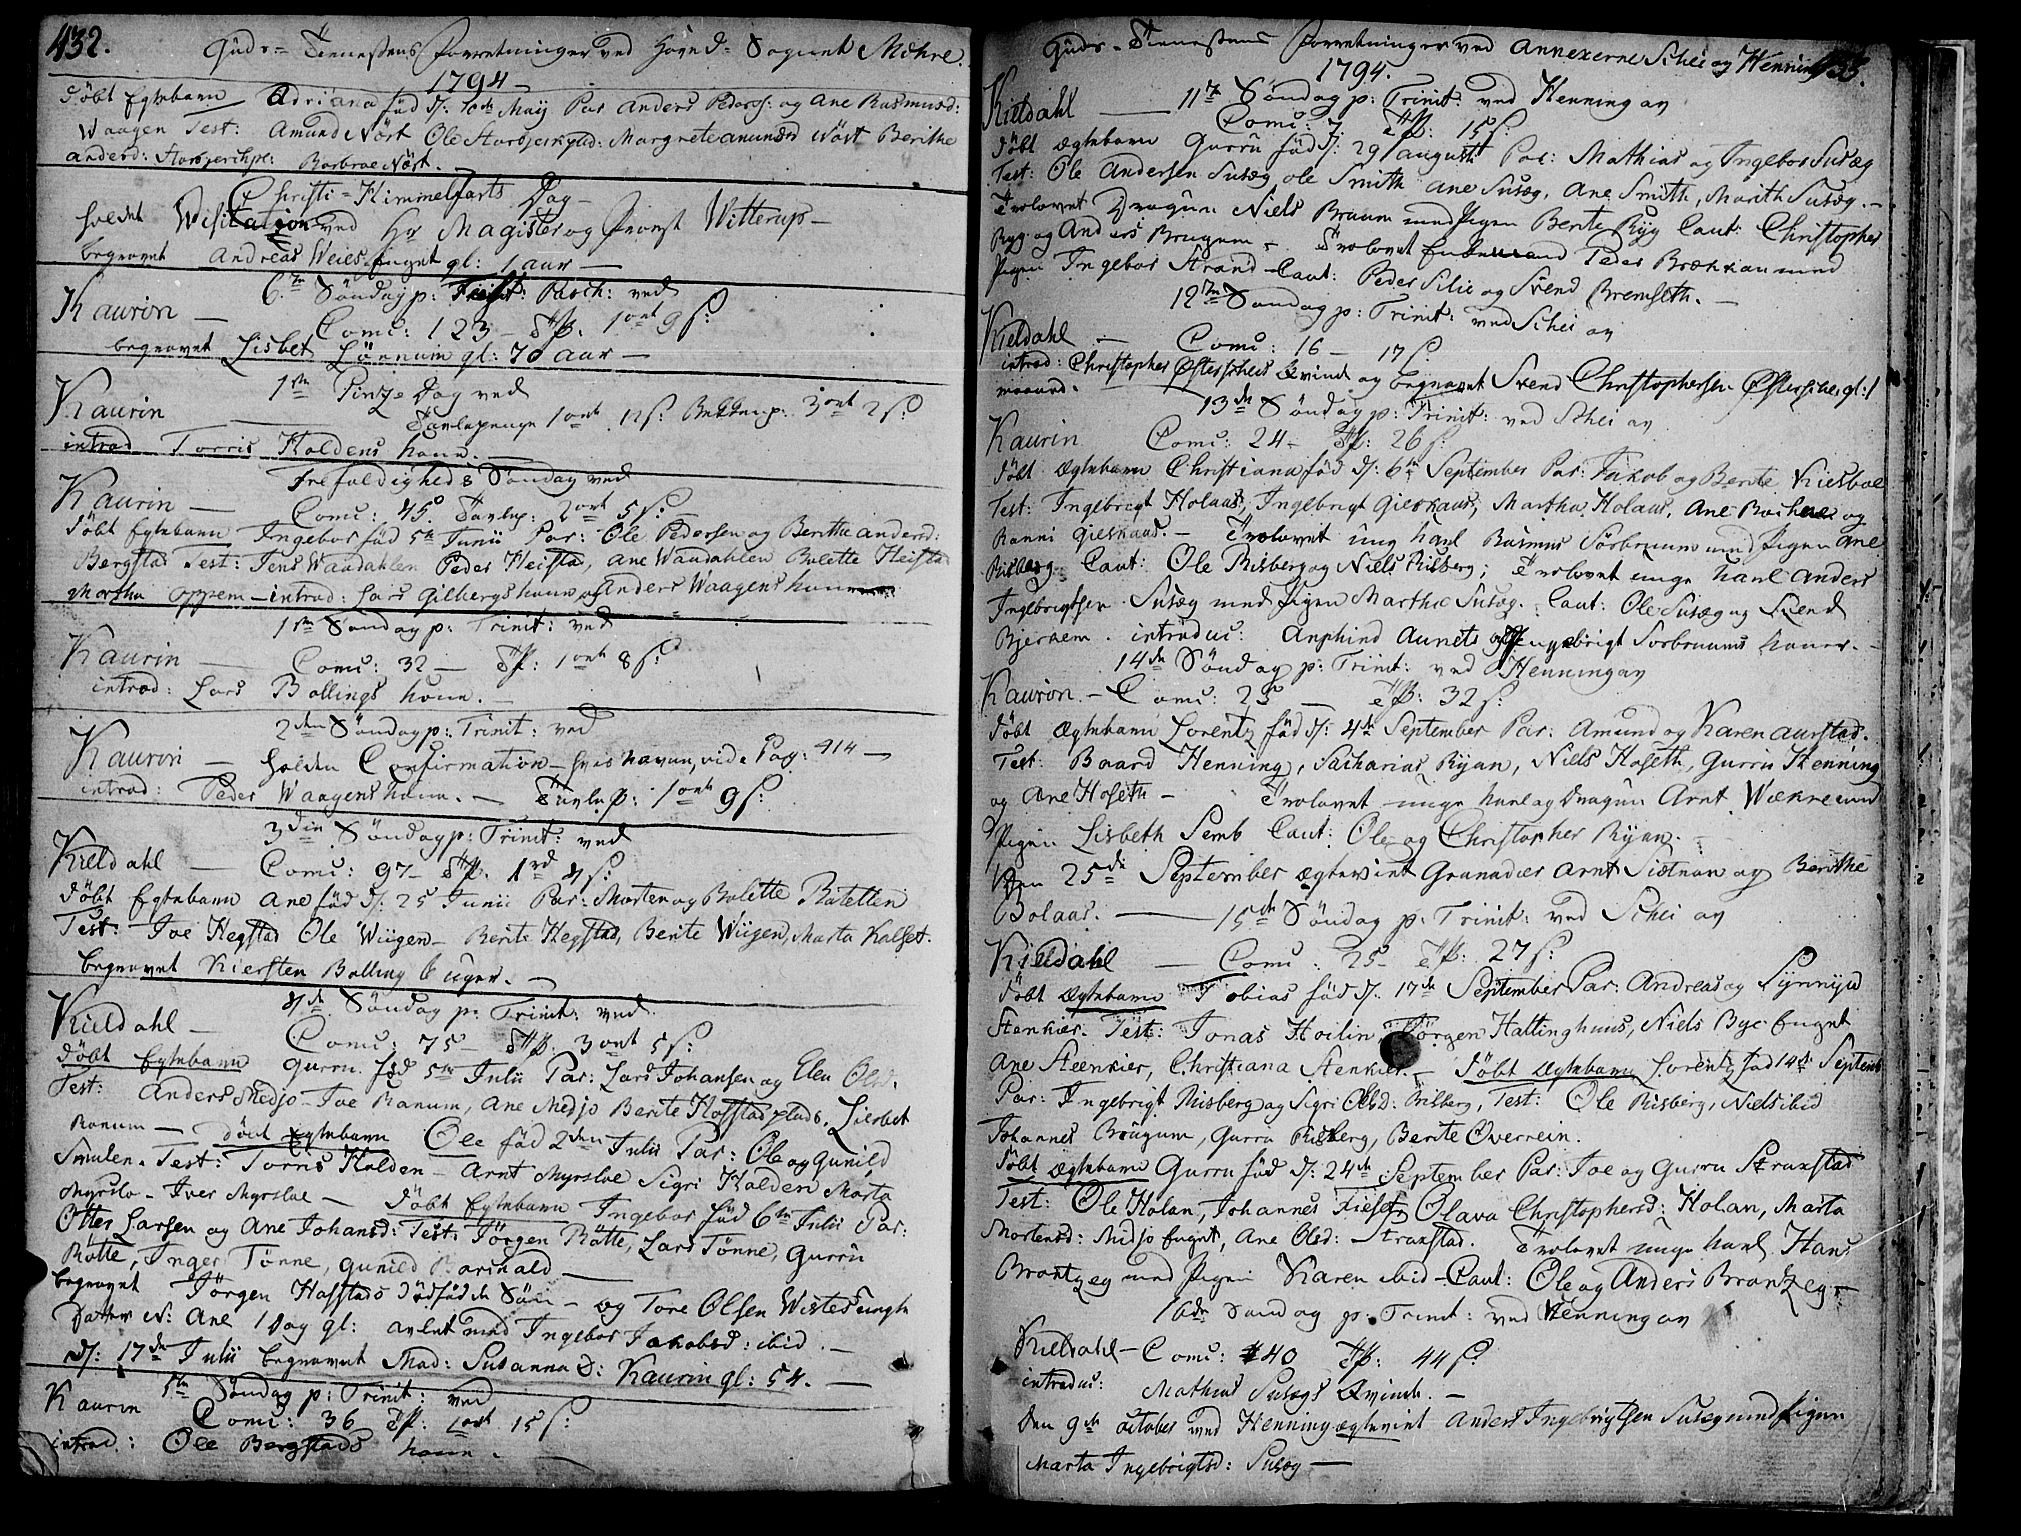 432.
Guds-Tienestens Forretninger ved Hoved-Sognet Mehre.
1794
døbt Egtebarn Adriana fød d: 10de Maij Par Anders Peders: og Ane Rasmusd:
Waagen Test: Amund Nøst Ole Margrete Nøst Berithe
Anderd: Barbroe Nøst.
Christi-Himmelfarts Dag
holdet Wisitation ved Hr Magister og Provst Witterup
begravet Andreas Weies gl: 1 aar
6te Søndag p: Pasch: ved
Kaurin
Comu: 123 - Tfl. 1 ort 9 s:
begravet Lisbet Lønnum gl: 70 aar
1ste Pintze Dag ved
Kaurin
Tavlepenge 1 ort 12 s: 3 ort 2 s:
introd Torris Holdens kone.
Trefoldigheds Søndag ved
Kaurin
Comu: 45 Tavlep: 2 ort 5 s:
døbt Egtebarn Ingebor fød 5te Junii Par: Ole Pedersen og Berithe Anderd:
Bergstad Test: Jens Waadahlen Peder Heistad, Ane Waadahlen Bolette Heistad
Martha Oppem - introd: Lars Gilbergs kone og Anders Waagens kone
1ste Søndag p: Trinit: ved
Kaurin
Comu: 32 Tfl: 1 ort 8 s:
introd: Lars Bollings kone.
2den Søndag p: Trinit: ved
Kaurin
holden Confirmation - hvis navne, vide Pag: 414
introd: Peder Waagens kone. - Tavlep: 1 ort 9 s:
3die Søndag p: Trinit: ved
Kieldahl
Comu: 97 - Tfl. 1 rd 4 s:
døbt Egtebarn Ane fød d: 25 Junii Par: Morten og Bolette Rotetten
Test: Joe Hegstad Ole Wiigen - Berite Hegstad, Berite Wiigen, Marta Kalset.
begravet Kiersten Bolling 6 uger.
4de Søndag p: Trinit: ved
Kieldahl
Comu: 75 - Tfl: 3 ort 5 s:
døbt Egtebarn Gurru fød 5te Julii Par: Lars Johansen og Elen Olsd.
Test: Anders Medjo - Joe Ranum, Ane Medjo Berite Hofstad plads. Liesbet
Ranum - døbt Egtebarn Ole fød 2den Julii Par: Ole og Gunild
Smulen. Test: Torris Holden - Arnt Myrsloe Sigri Holden Marta
Myrslo - Iver Myrsloe - døbt Egtebarn Ingebor fød 6te Julii Par:
Otter Larsen og Ane Johansd: Test: Jørgen Røtte, Lars Tønne, Gurru
Røtte, Inger Tønne, Gunild Barhald
begravet Jørgen Hofstads dødfødde Søn - og Tore Olsen Wisted
Datter N: Ane 1 Dag gl: avlet med Ingebor Jakobsd: ibid.
d: 17de Julii begravet Mad: Susanna S: Kaurin gl: 54.
5te Søndag p: Trinit: ved
Kaurin
Comu: 36 Tfl: 1 ort 15 s:
introd: Ole Bergstads kone.
Guds-Tienestens Forretninger ved Annexerne Schei og Henning 433.
1794.
11te Søndag p: Trinit: ved Henning av
Kieldahl
Comu: 7. Tfl: 15 s:
døbt Egtebarn Gurru fød d: 29 augusti Par: Mathias og Ingebor Susæg
Test: Ole Andersen Susæg Ole Smith Ane Susæg, Ane Smith, Marith Susæg.
Trolovet Dragun Niels Braum med Pigen Berite Ryg Caut: Christopher
Ryg og Anders Brugum. Trolovet Peder Bræhkan med
Pigen Ingebor Strand - Caut: Peder Silie og Svend Bremseth.
12te Søndag p: Trinit: ved Schei av
Kieldahl
Comu: 16 - 17 s:
introd: Christopher Østerscheis Qvinde og begravet Svend Christophersen Østerschei gl: 1
maaned.
13de Søndag p: Trinit: ved Schei av
Kaurin
Comu: 24 - Tfl: 26 s:
døbt Egtebarn Christiana fød d: 6te September Par: Jakob og Berite Kiesboe
Test: Ingebrigt Holaas, Ingebrigt Gieskaas, Martha Holaas, Ane og
Ranni Gieskaas. - Trolovet ung karl Rasmus Sørbruum med Pigen Ane
Risberg. Caut: Ole Risberg og Niels Risberg; Trolovet unge karl Anders
Ingebrigtsen Susæg med Pigen Martha Susæg. Caut: Ole Susæg og Svend
Bjerkem. introduc: Anphind Aunets og Ingebrigt Sørbruums koner.
14de Søndag p: Trinit: ved Henning av
Kaurin. - Comu: 25 Tfl: 32 s:
døbt Egtebarn Lorentz fød d: 4de September Par: Amund og Karen Aurstad.
Test: Baard Henning, Sacharias Ryan, Niels Hoseth, Gurru Henning
og Ane Hoseth - Trolovet unge karl og Dragun Arnt Wækre med
Pigen Lisbeth Semb Caut: Ole og Christopher Ryan.
Den 25de September egteviet Granadier Arnt Siætnan og Berithe
Bolaas.
15de Søndag p: Trinit: ved Schei av
Kieldahl
Comu: 25 - Tfl: 27 s:
døbt Egtebarn Tobias fød d: 17de September Par: Andreas og Synnyva
Stenkier. Test: Jonas Hoilin, Jørgen Haltinghuus, Niels Bye
Ane Steenkier, Christiana Stenkier. - døbt Egtebarn Lorentz fød 14de Septemb
Par: Ingebrigt Risberg og Sigri Olsd: Risberg, Test: Ole Risberg, Niels ibid
Johannes Brugum, Gurru Risberg, Berite Overrein.
døbt Egtebarn Gurru fød d: 24de September Par: Joe og Gurru Strusstad
Test: Ole Holan, Johannes Fieset, Olava Christophersd: Holan, Marta
Mortensd: Medjo, Ane Olsd: Strusstad. Trolovet unge karl Hans
Brantzeg med Pigen Karen ibid - Caut: Ole og Anders Brantzeg
16de Søndag p: Trinit: ved Henning av
Kieldahl - Comu: 40 Tfl: 44 s:
introduc: Mathias Susægs Qvinde.
Den 9de October ved Henning egteviet Anders Ingebrigtsen Susæg med Pigen
Marta Ingebrigtsd: Susæg